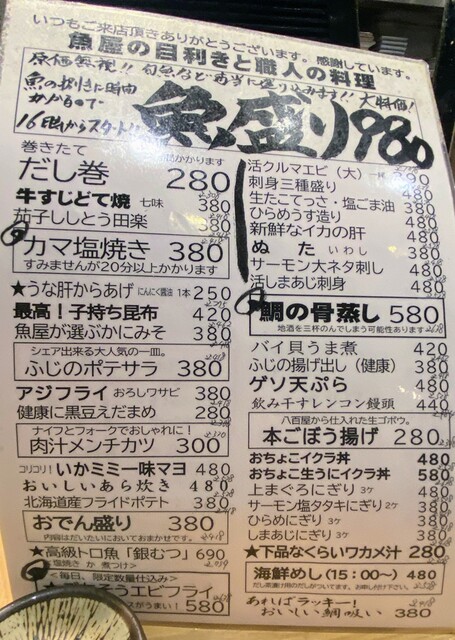 いつもご来店頂きありがとうございます。感謝しています。
魚屋の目利きと職人の料理
原価無視!! 旬魚など適当に盛り込みます!! 大特価!
魚の捌きに時間
かかるので
16時からスタート!!
魚盛り980
巻きたて
かかります
だし巻 280
牛すじどて焼 七味 380
茄子ししとう田楽 380
カマ塩焼き 380
すみませんが20分以上かかります
★うな肝からあげ にんにく醤油 1本 250
最高!子持ち昆布 420
魚屋が選ぶかにみそ 380
シェア出来る大人気の一皿。
ふじのポテサラ 380
アジフライ おろしワサビ 380
健康に黒豆えだまめ 280
ナイフとフォークでおしゃれに!
肉汁メンチカツ 300
コリコリ!いかミミ一味マヨ 480
おいしいあら炊き 480
北海道産フライドポテト 380
おでん盛り 380
内容はおだいたいにおいておまかせです。
★高級トロ魚「銀むつ」690
塩焼き か 煮つけ
<毎日、限定数量仕込み>
エビフライ
スがうまい! 580
活クルマエビ(大)
刺身三種盛り 480
生たこてっさ・塩ごま油 380
ひらめうす造り 480
新鮮なイカの肝 480
ぬた いわし 380
サーモン大ネタ刺し 480
活しまあじ刺身 480
鯛の骨蒸し 580
地酒を三杯のんでしまう可能性あります
バイ貝うま煮 420
ふじの揚げ出し(健康) 380
ゲソ天ぷら 480
飲み干すレンコン饅頭 440
八百屋から仕入れた生ゴボウ。
本ごぼう揚げ 280
おちょこイクラ丼 480
おちょこ生うにイクラ丼 580
上まぐろにぎり 3ケ 480
サーモン塩タタキにぎり 2ケ 380
ひらめにぎり 3ケ 380
しまあじにぎり 3ケ 480
★下品なくらいワカメ汁 280
海鮮めし(15:00〜) 480
だし茶漬け用のだしがついてます。お申し付け下さい。
あればラッキー!
おいしい鯛の吸い 380